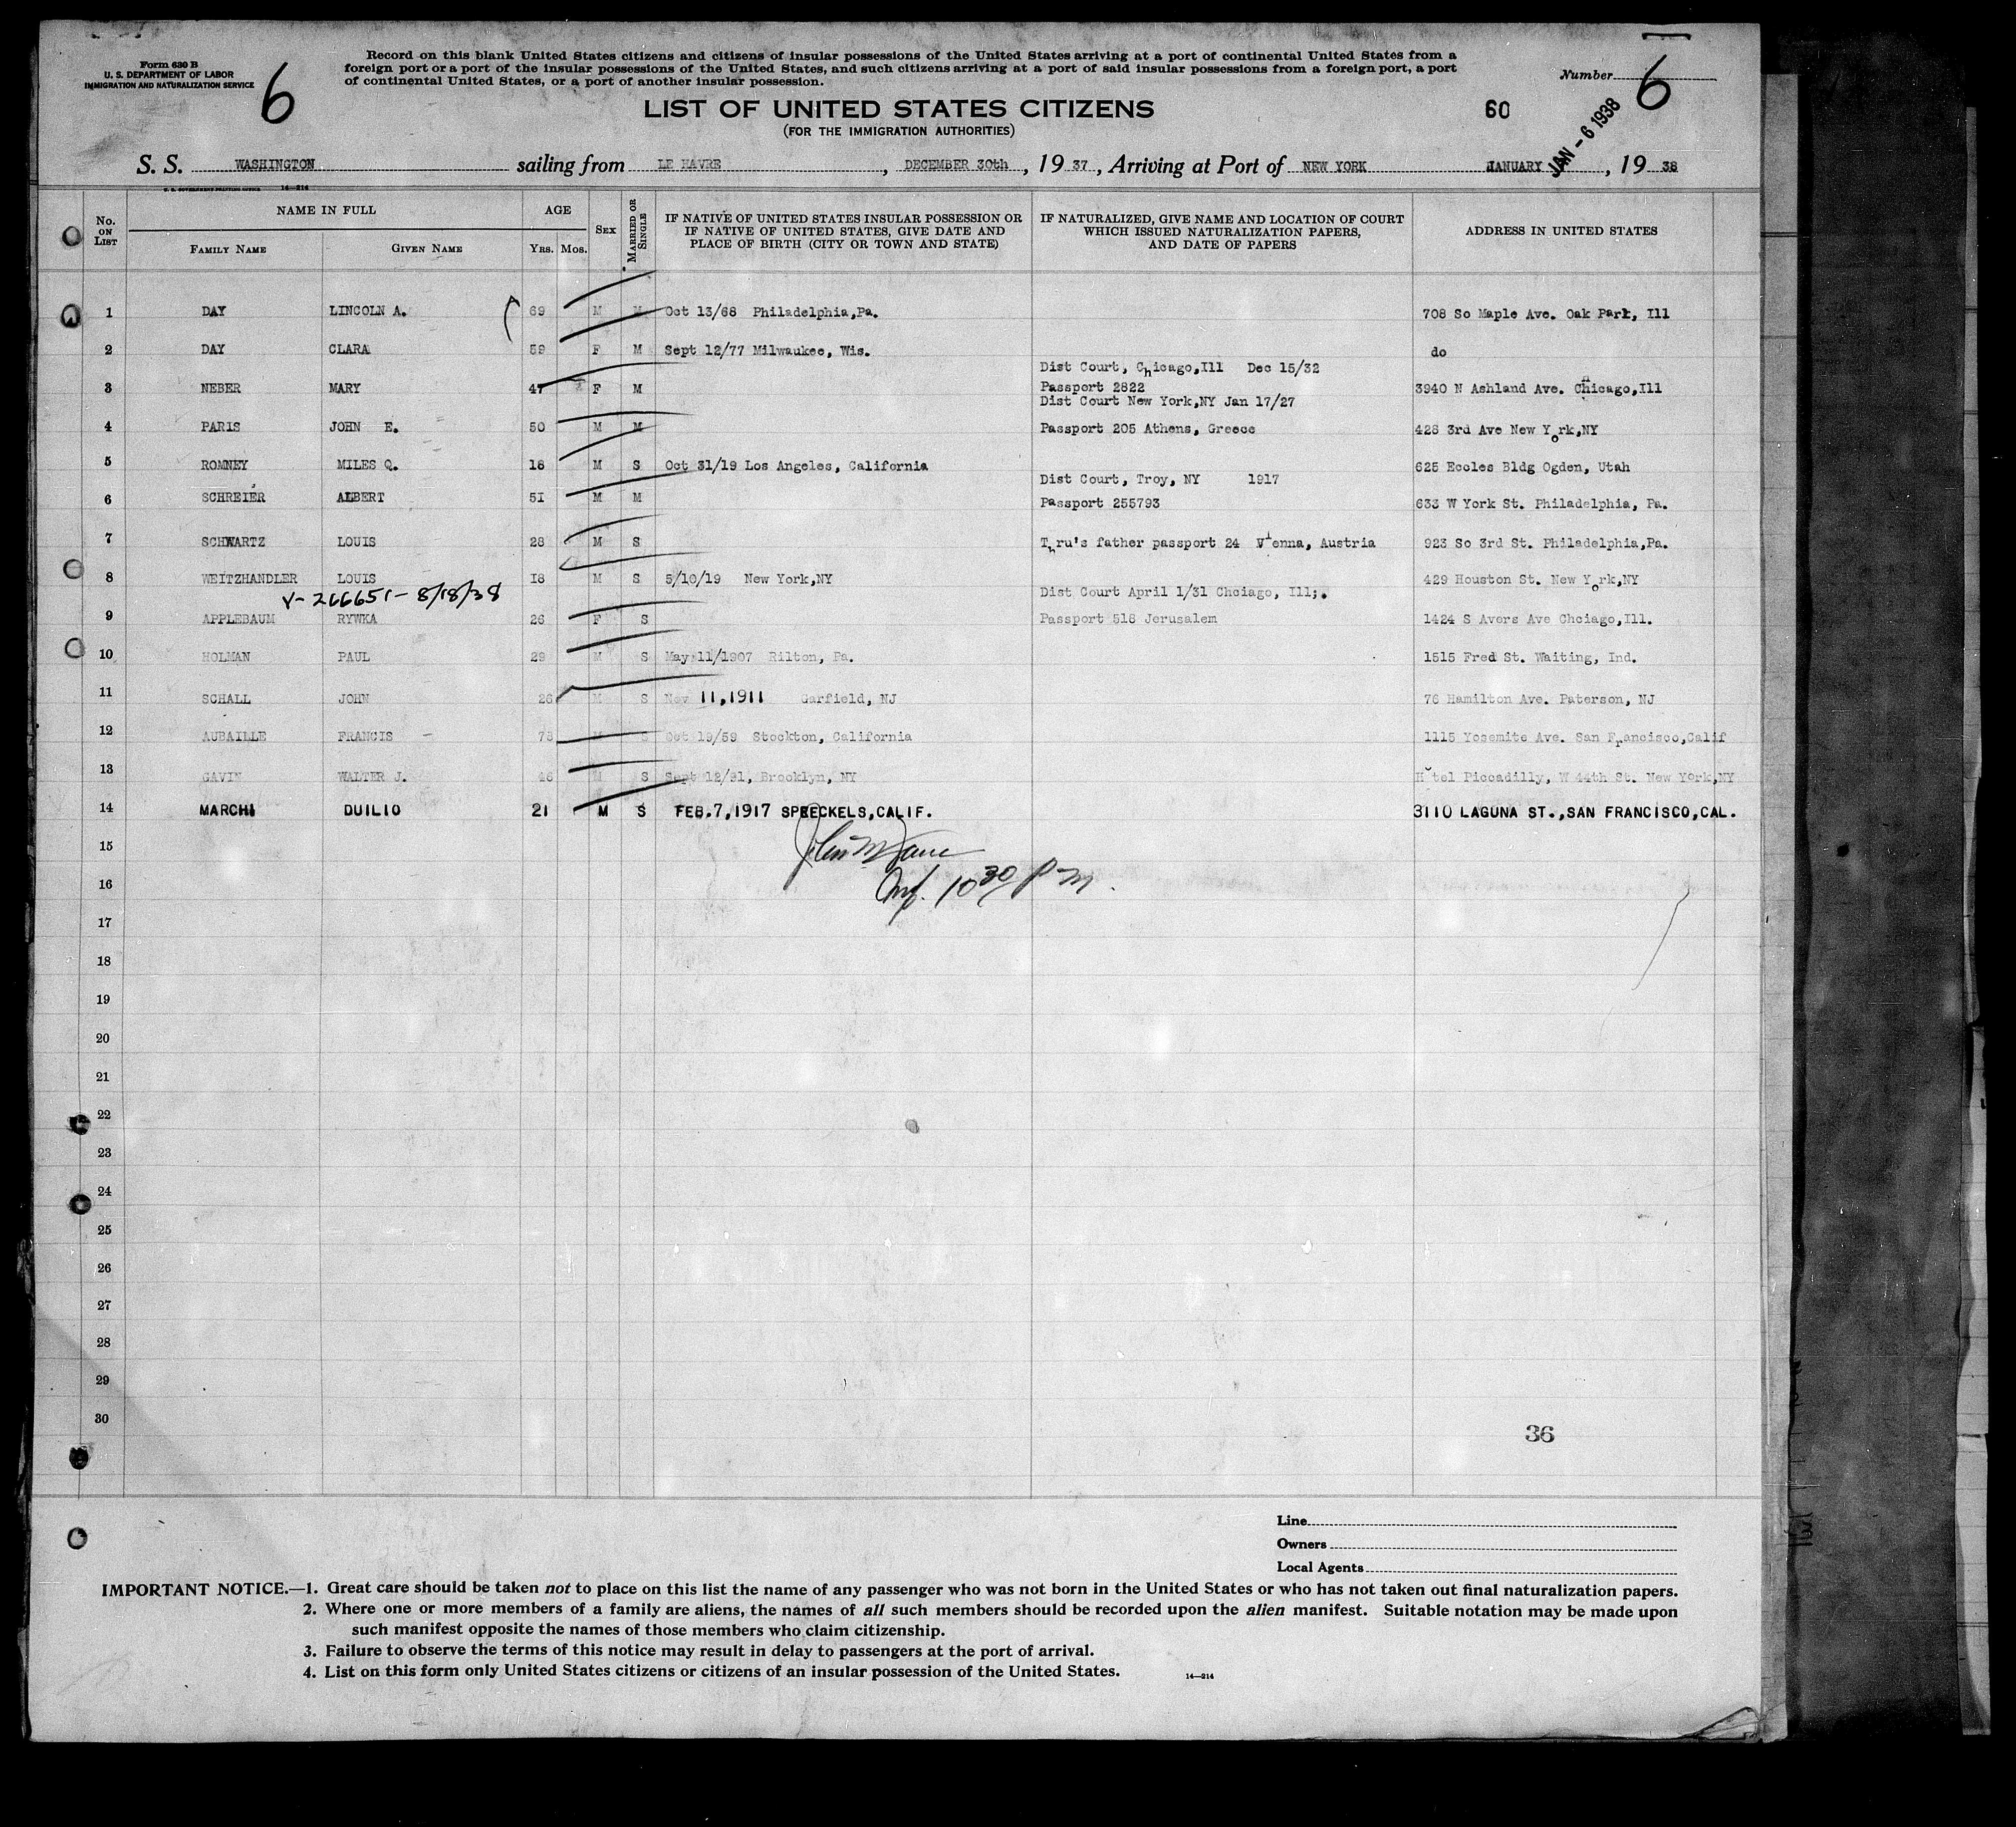 Form 630 B
U. S. DEPARTMENT OF LABOR
IMMIGRATION AND NATURALIZATION SERVICE
6
Record on this blank United States citizens and citizens of insular possessions of the United States arriving at a port of continental United States from a
foreign port or a port of the insular possessions of the United States, and such citizens arriving at a port of said insular possessions from a foreign port, a port
of continental United States, or a port of another insular possession.
Number 6
LIST OF UNITED STATES CITIZENS
60
JAN - 6 1938
(FOR THE IMMIGRATION AUTHORITIES)
S. S. WASHINGTON sailing from LE HAVRE, DECEMBER 30th, 19 37, Arriving at Port of NEW YORK JANUARY, 19 38
U. S. GOVERNMENT PRINTING OFFICE 14—214
No. ON LIST NAME IN FULL FAMILY NAME GIVEN NAME AGE YRS. MOS. SEX MARRIED OR SINGLE IF NATIVE OF UNITED STATES INSULAR POSSESSION OR IF NATIVE OF UNITED STATES, GIVE DATE AND PLACE OF BIRTH (CITY OR TOWN AND STATE) IF NATURALIZED, GIVE NAME AND LOCATION OF COURT WHICH ISSUED NATURALIZATION PAPERS, AND DATE OF PAPERS ADDRESS IN UNITED STATES
1 DAY LINCOLN A. 69 M M Oct 13/68 Philadelphia,Pa. 708 So Maple Ave. Oak Park, Ill
2 DAY CLARA 59 F M Sept 12/77 Milwaukee, Wis. do
Dist Court, Chicago,Ill Dec 15/32
3 NEBER MARY 47 F M Passport 2822 3940 N Ashland Ave. Chicago,Ill
Dist Court New York,NY Jan 17/27
4 PARIS JOHN E. 50 M M Passport 205 Athens, Greece 428 3rd Ave New York,NY
5 ROMNEY MILES Q. 18 M S Oct 31/19 Los Angeles, California 625 Eccles Bldg Ogden, Utah
Dist Court, Troy, NY 1917
6 SCHREIER ALBERT 51 M M Passport 255793 633 W York St. Philadelphia, Pa.
7 SCHWARTZ LOUIS 28 M S Thru's father passport 24 Vienna, Austria 923 So 3rd St. Philadelphia,Pa.
8 WEITZHANDLER LOUIS 18 M S 5/10/19 New York,NY 429 Houston St. New York,NY
V-266651- 8/18/38
Dist Court April 1/31 Chciago, Ill;.
9 APPLEBAUM RYWKA 26 F S Passport 518 Jerusalem 1424 S Avers Ave Chciago,Ill.
10 HOLMAN PAUL 29 M S May 11/1907 Rilton, Pa. 1515 Fred St. Waiting, Ind.
11 SCHALL JOHN 26 M S Nov 11,1911 Garfield, NJ 76 Hamilton Ave. Paterson, NJ
12 AUBAILLE FRANCIS 78 M S Oct 19/59 Stockton, California 1115 Yosemite Ave. San Francisco,Calif
13 GAVIN WALTER J. 46 M S Sept 12/91, Brooklyn, NY Hotel Piccadilly, W 44th St. New York,NY
14 MARCHI DUILIO 21 M S FEB.7,1917 SPRECKELS,CALIF. 3110 LAGUNA ST.,SAN FRANCISCO,CAL.
15
16 10 30 P m.
17
18
19
20
21
22
23
24
25
26
27
28
29
30
36
Line
Owners
Local Agents
IMPORTANT NOTICE.—1. Great care should be taken not to place on this list the name of any passenger who was not born in the United States or who has not taken out final naturalization papers.
2. Where one or more members of a family are aliens, the names of all such members should be recorded upon the alien manifest. Suitable notation may be made upon
such manifest opposite the names of those members who claim citizenship.
3. Failure to observe the terms of this notice may result in delay to passengers at the port of arrival.
4. List on this form only United States citizens or citizens of an insular possession of the United States.
14—214